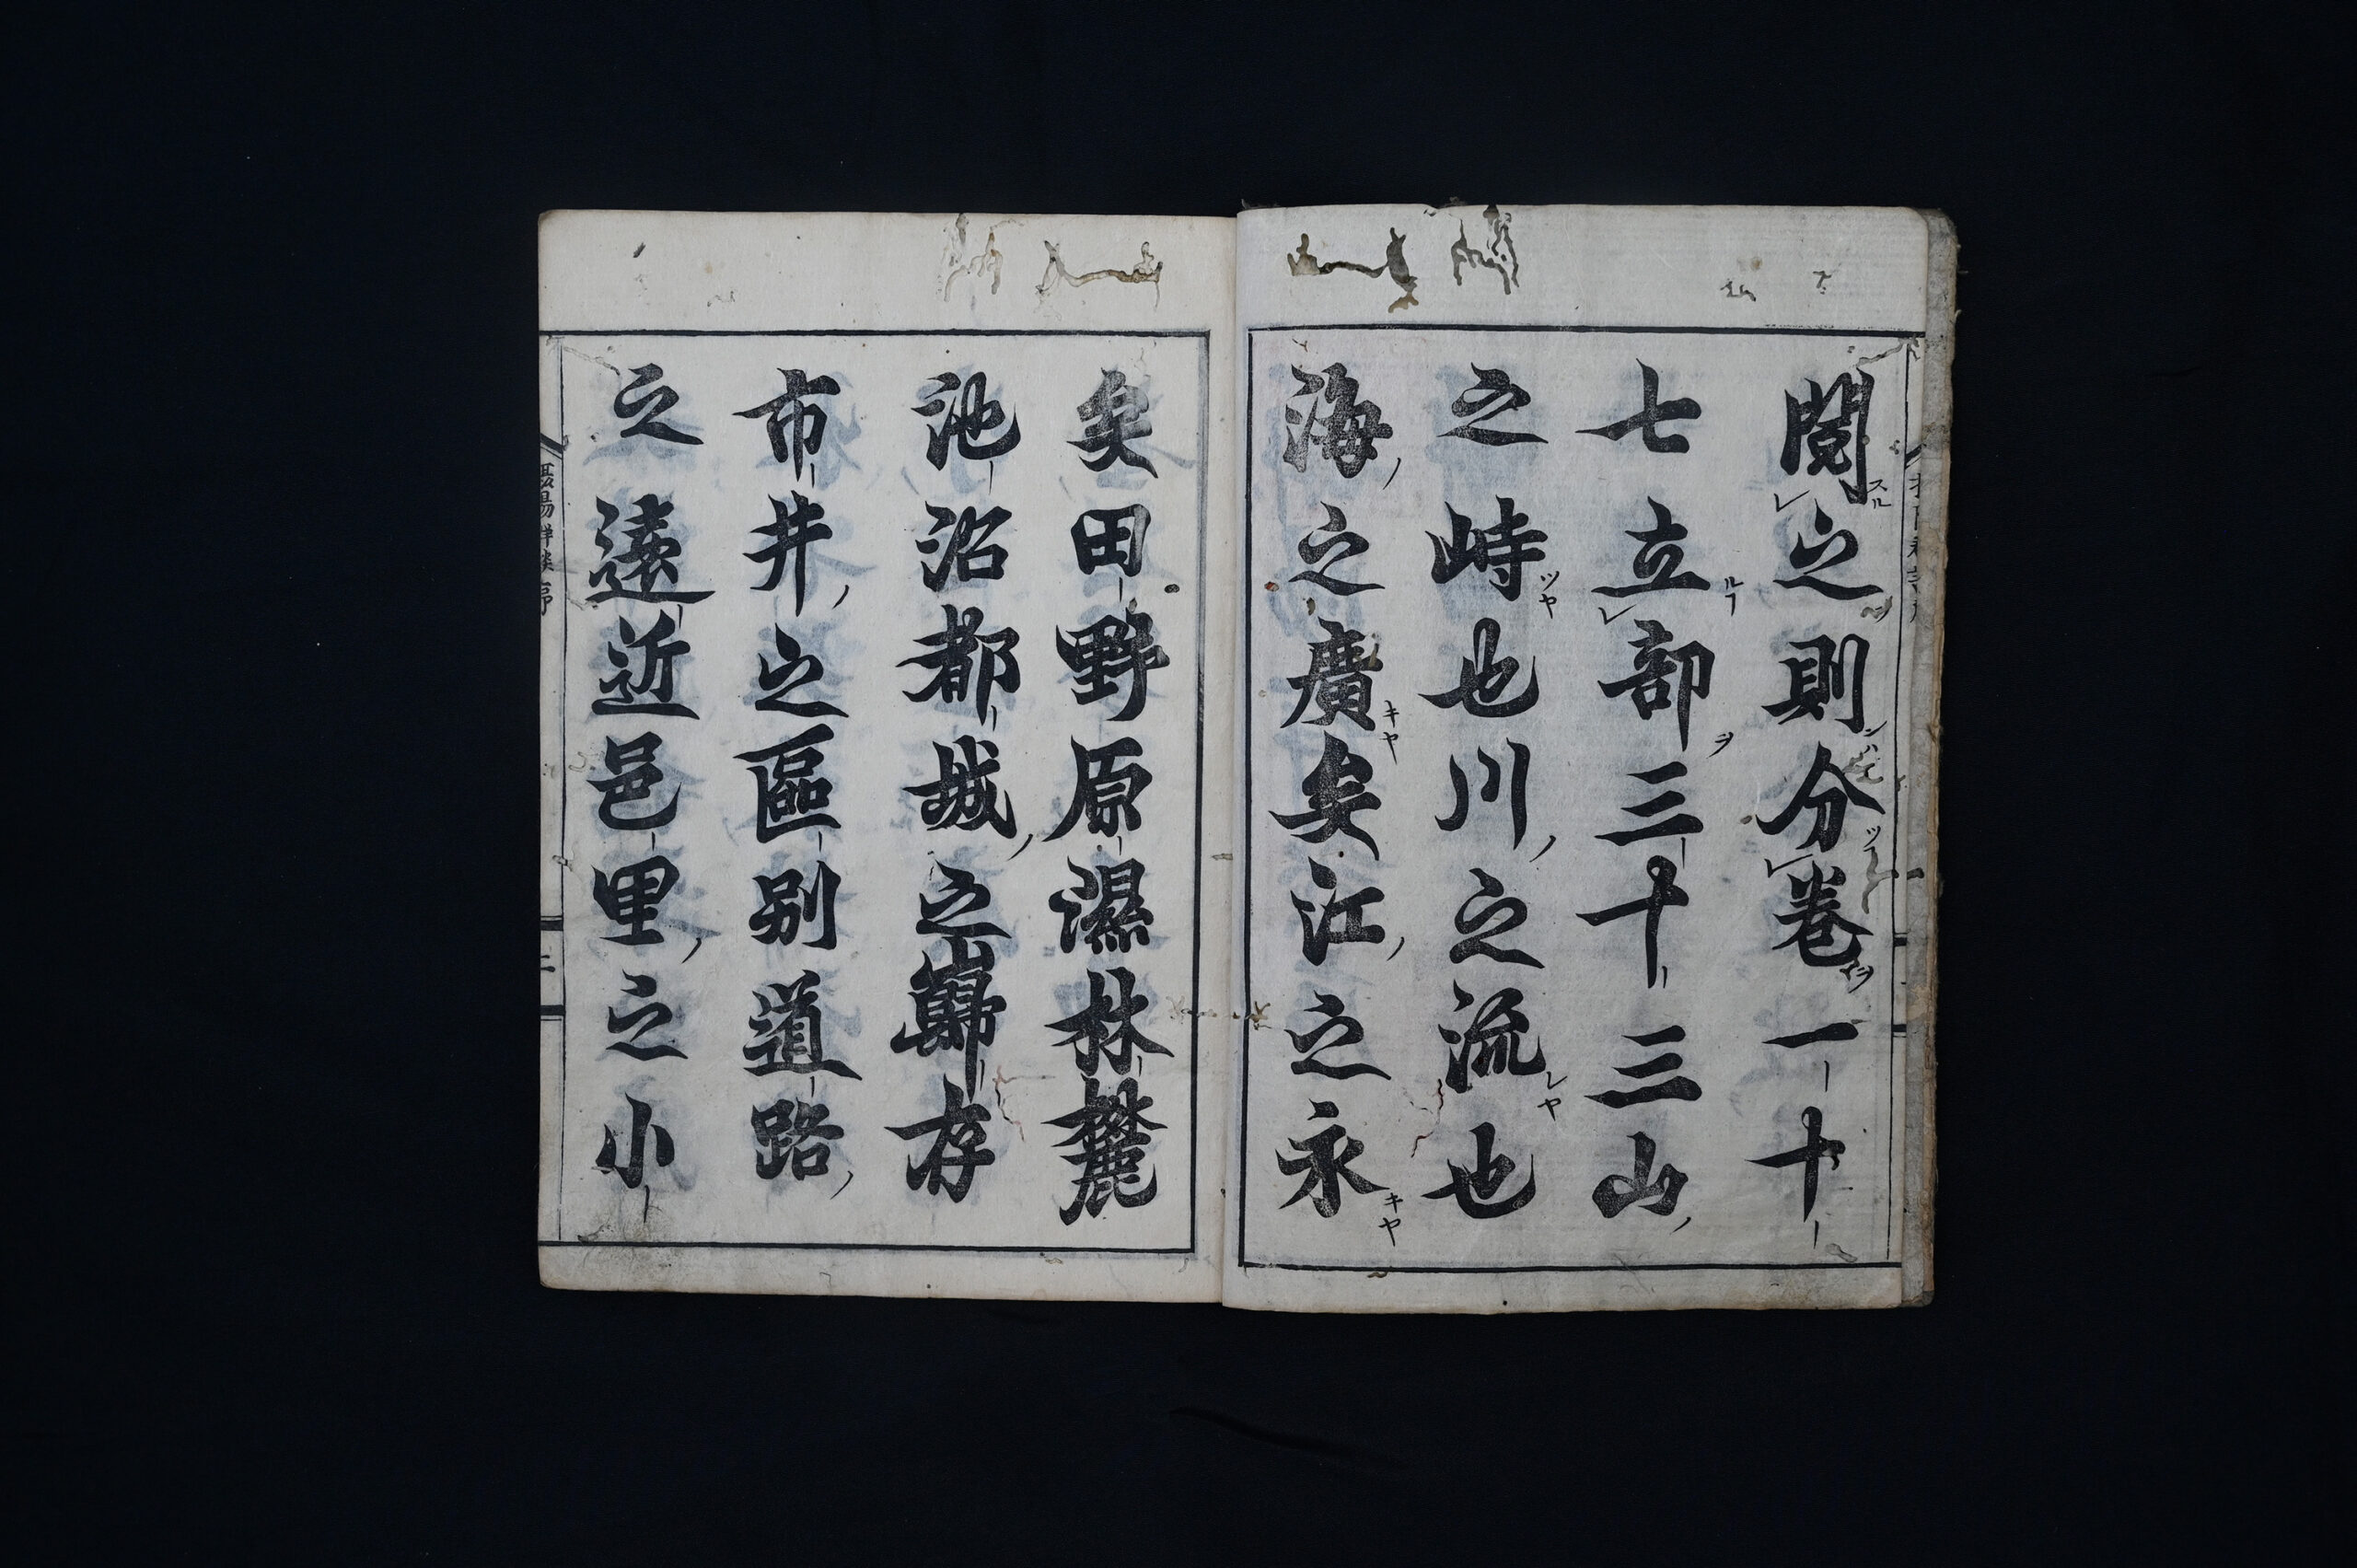 閲之則分卷一十
七立部三十三山
之峙也川之流也
海之廣矣江之永
矣田野原濕林麓
池沼都城之巋存
市井之區別道路
之遠近邑里之小